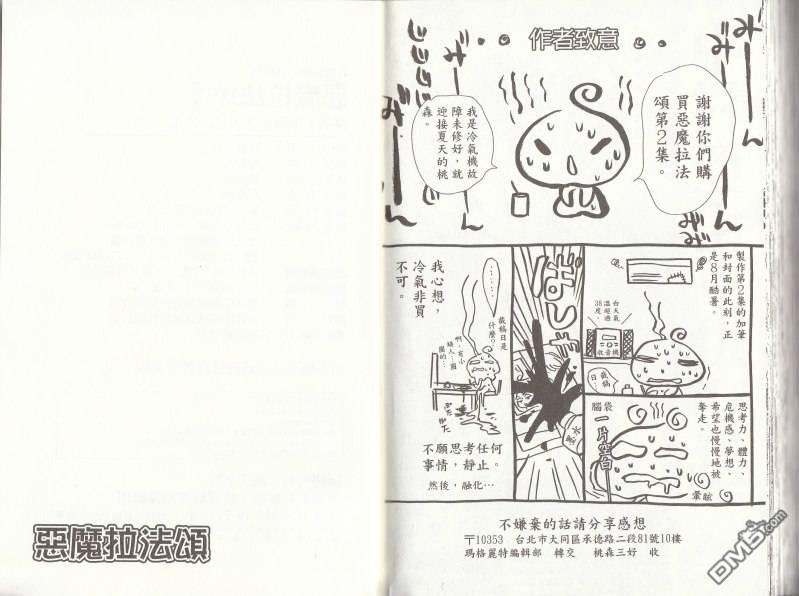 作者致意
謝謝你們購
買惡魔拉法
頌第2集。
我是冷氣機故
障未修好，就
迎接夏天的桃
森。
みーん
みーん
製作第2集的加筆
和封面的此刻，正
是8月酷暑。
今天氣
溫超過
38度。
收音機
截稿
日…
思考力、體力、
危機感、夢想、
希望也慢慢地被
奪走。
腦袋
一片空白
暈眩
ばしゃ
墨水
………
截稿日是
什麼？
啊，有小
綠人…圍
圈的…
不願思考任何
事情，靜止。
然後，融化…
我心想，
冷氣非買
不可。
不嫌棄的話請分享感想
〒10353 台北市大同區承德路二段81號10樓
瑪格麗特編輯部 轉交 桃森三好 收
惡魔拉法頌
DM5.com